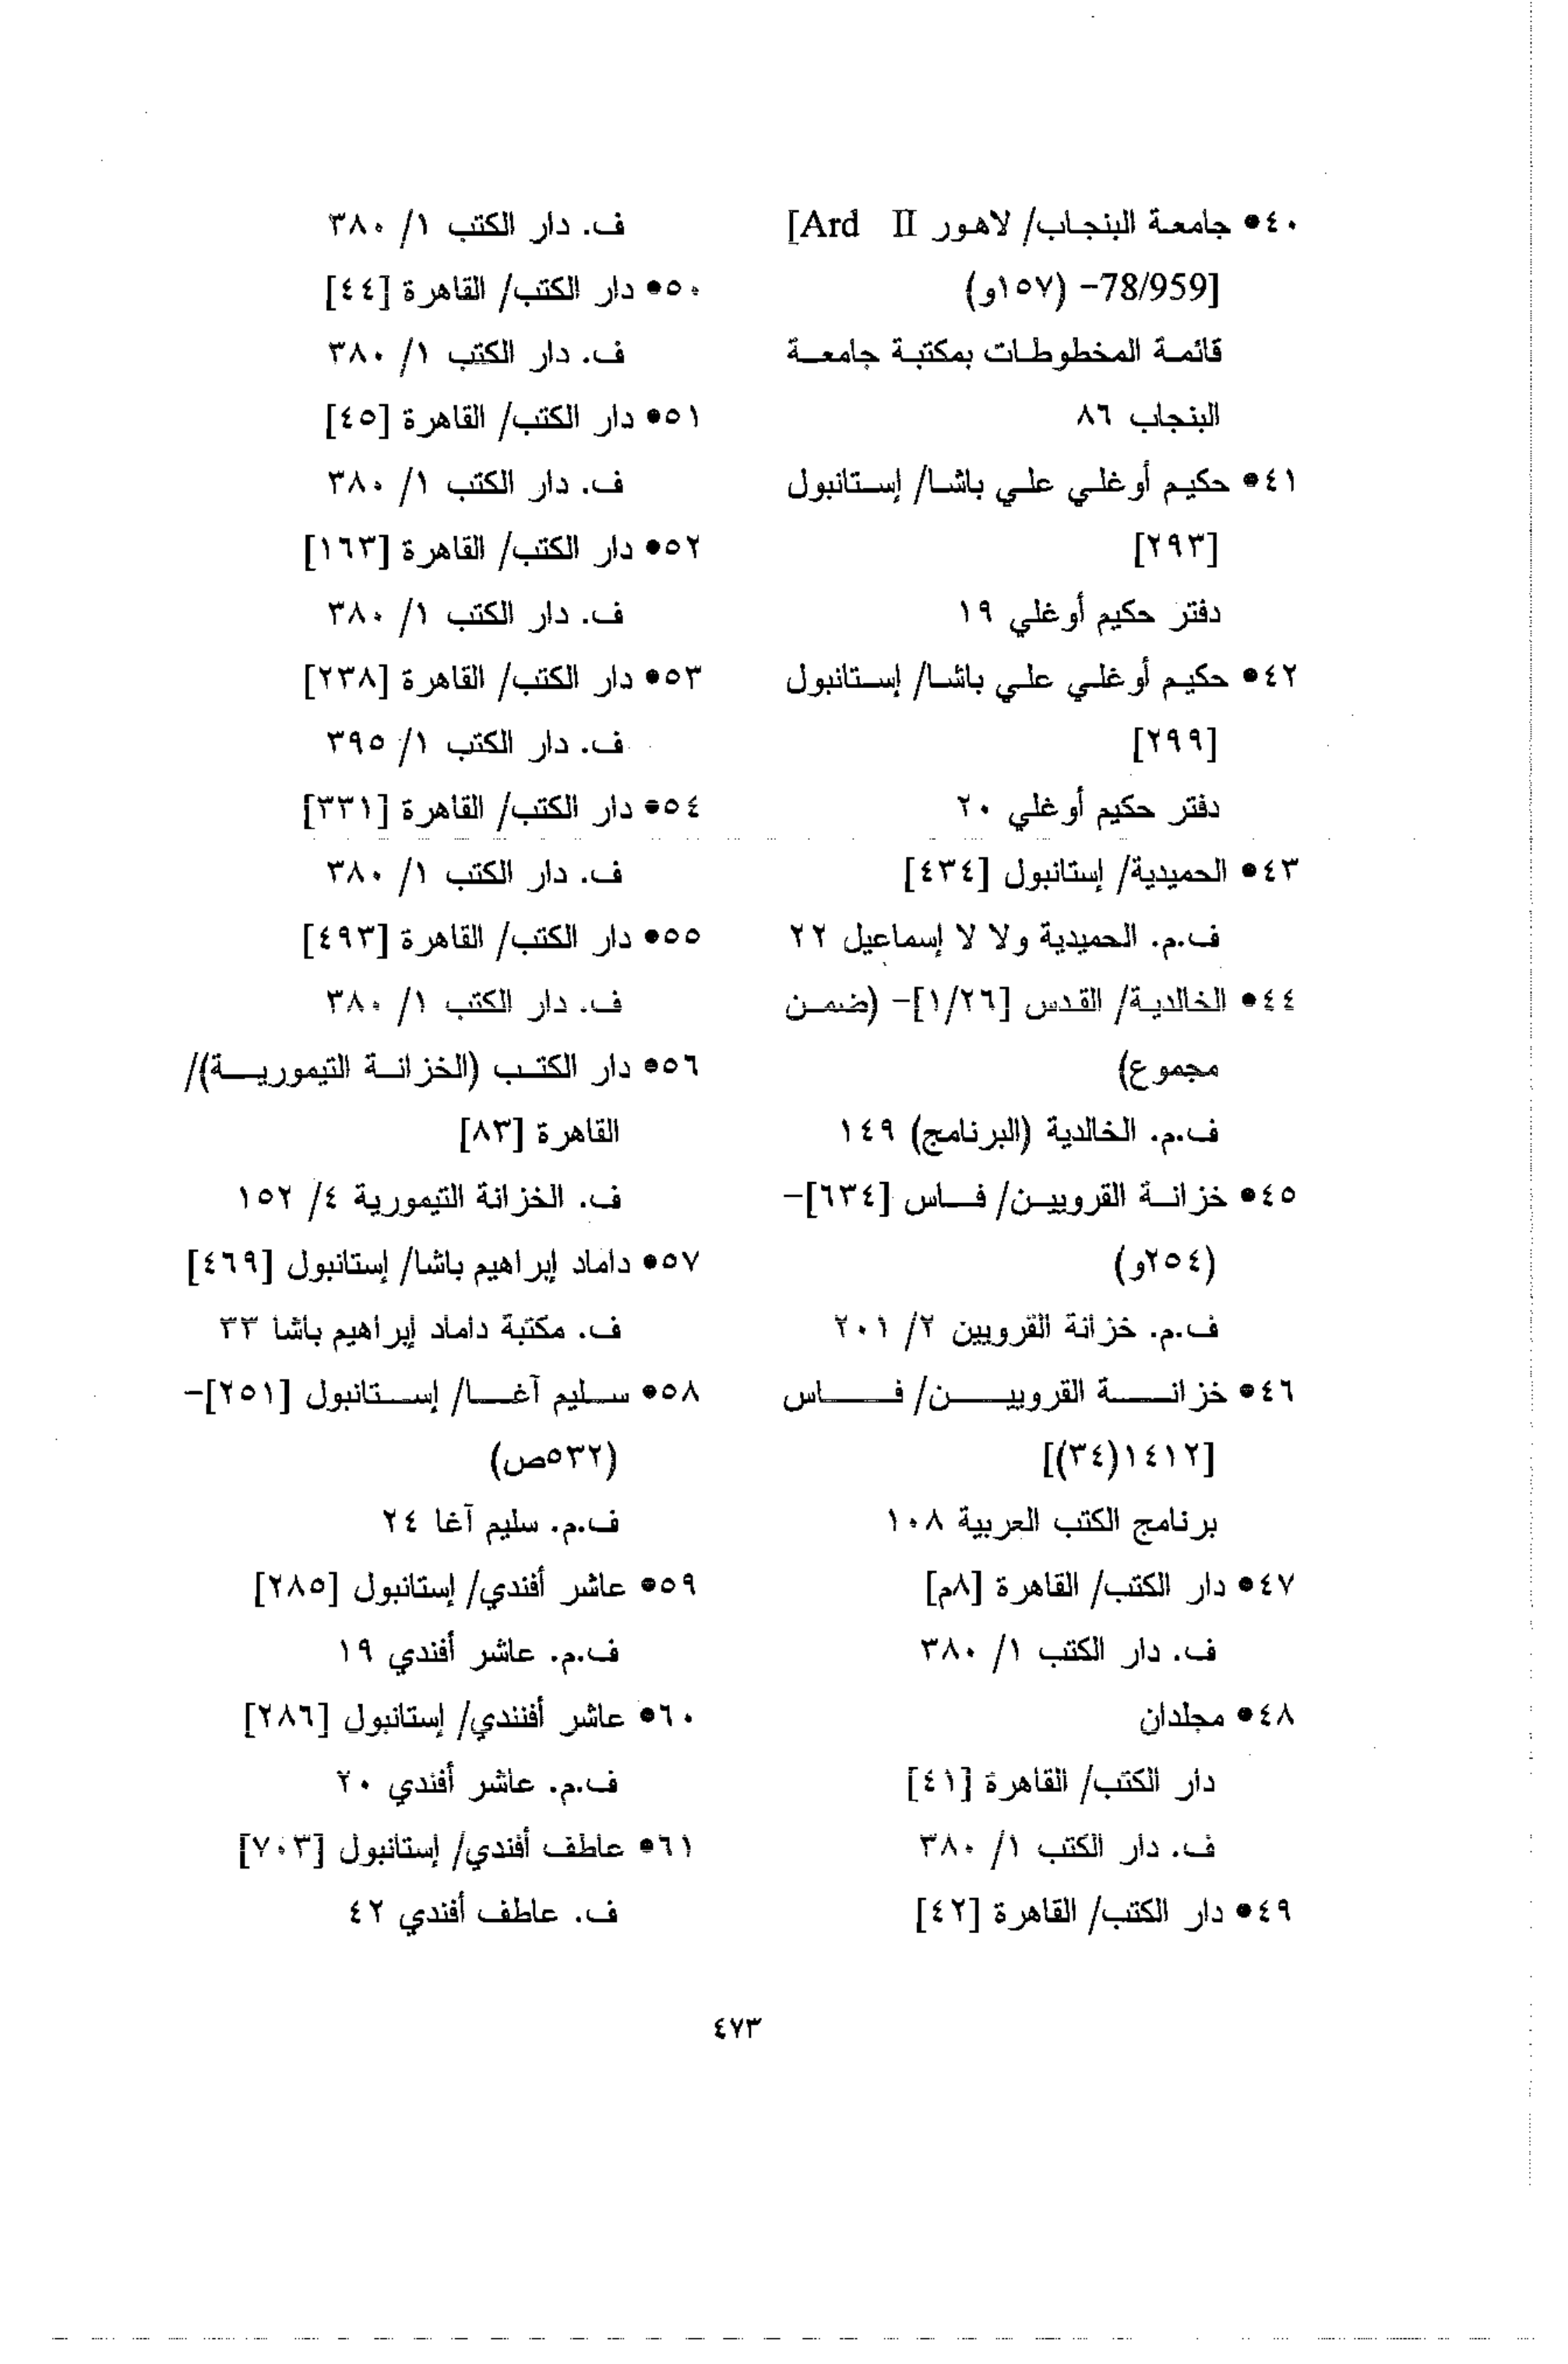 ٤٠• جامعة البنجاب/ لاهور [Ard II
78/959]- (١٥٧و)
قائمة المخطوطات بمكتبة جامعة
البنجاب ٨٦
٤١• حكيم أوغلي علي باشا/ إستانبول
[٢٩٣]
دفتر حكيم أوغلي ١٩
٤٢• حكيم أوغلي علي باشا/ إستانبول
[٢٩٩]
دفتر حكيم أوغلي ٢٠
٤٣• الحميدية/ إستانبول [٤٣٤]
ف.م. الحميدية ولا لا إسماعيل ٢٢
٤٤• الخالدية/ القدس [١/٢٦]- (ضمن
مجموع)
ف.م. الخالدية (البرنامج) ١٤٩
٤٥• خزانة القرويين/ فاس [٦٣٤]-
(٢٥٤و)
ف.م. خزانة القرويين ٢/ ٢٠١
٤٦• خزانة القرويين/ فاس
[١٤١٢(٣٤)]
برنامج الكتب العربية ١٠٨
٤٧• دار الكتب/ القاهرة [٨م]
ف. دار الكتب ١/ ٣٨٠
٤٨• مجلدان
دار الكتب/ القاهرة [٤١]
ف. دار الكتب ١/ ٣٨٠
٤٩• دار الكتب/ القاهرة [٤٢]
ف. دار الكتب ١/ ٣٨٠
٥٠• دار الكتب/ القاهرة [٤٤]
ف. دار الكتب ١/ ٣٨٠
٥١• دار الكتب/ القاهرة [٤٥]
ف. دار الكتب ١/ ٣٨٠
٥٢• دار الكتب/ القاهرة [١٦٣]
ف. دار الكتب ١/ ٣٨٠
٥٣• دار الكتب/ القاهرة [٢٣٨]
ف. دار الكتب ١/ ٣٩٥
٥٤• دار الكتب/ القاهرة [٣٣١]
ف. دار الكتب ١/ ٣٨٠
٥٥• دار الكتب/ القاهرة [٤٩٣]
ف. دار الكتب ١/ ٣٨٠
٥٦• دار الكتب (الخزانة التيمورية)/
القاهرة [٨٣]
ف. الخزانة التيمورية ٤/ ١٥٢
٥٧• داماد إبراهيم باشا/ إستانبول [٤٦٩]
ف. مكتبة داماد إبراهيم باشا ٣٣
٥٨• سليم آغا/ إستانبول [٢٥١]-
(٥٣٢ص)
ف.م. سليم آغا ٢٤
٥٩• عاشر أفندي/ إستانبول [٢٨٥]
ف.م. عاشر أفندي ١٩
٦٠• عاشر أفنندي/ إستانبول [٢٨٦]
ف.م. عاشر أفندي ٢٠
٦١• عاطف أفندي/ إستانبول [٧٠٣]
ف. عاطف أفندي ٤٢
٤٧٣